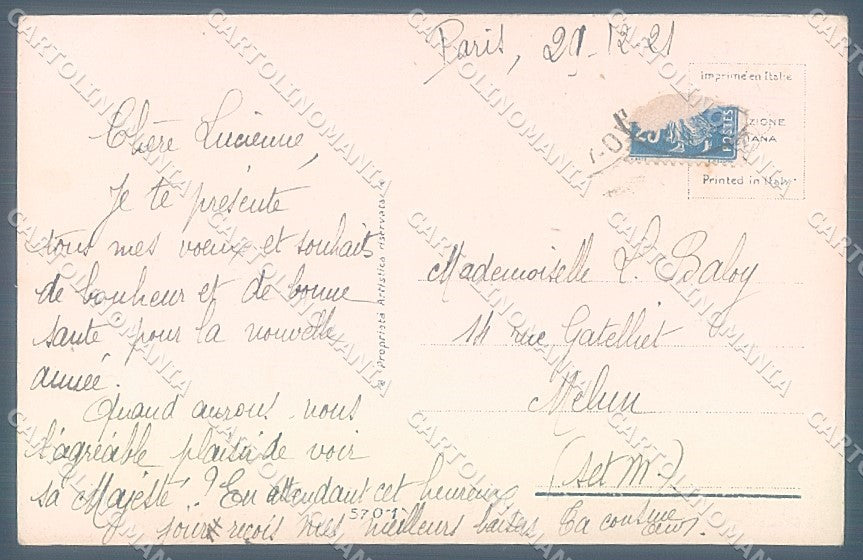 Paris, 29-12-21
Imprimé en Italie
ZIONE
ANA
Printed in Italy
POSTES
25
Chère Lucienne,
Je te présente
tous mes voeux et souhaits
de bonheur et de bonne
santé pour la nouvelle
année.
Quand aurons nous
l'agréable plaisir de voir
sa Majesté ? En attendant cet heureux
jour reçois mes meilleurs baisers Ta cousine
Proprietà Artistica riservata
5701
Mademoiselle L. Baloy
14 rue Gatelliet
Melun
(S et M)
CARTOLINOMANIA